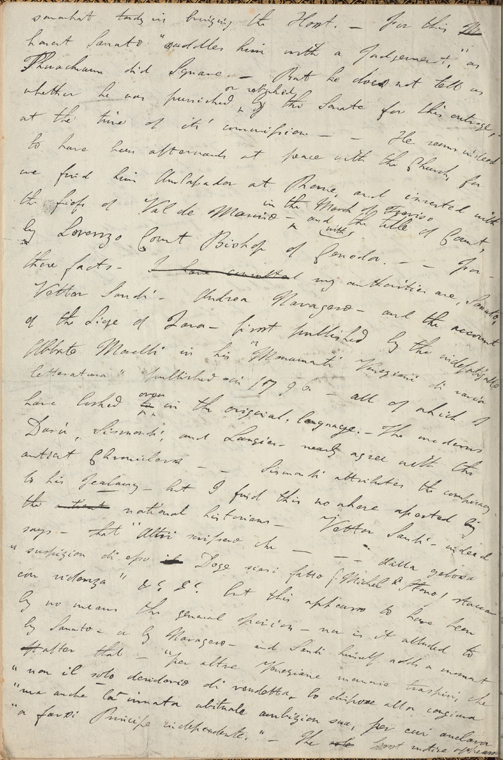 somewhat tardy in bringing the Host. — For this
honest Sanuto "saddles him with a Judgement," as
Thwackum did Square. — But he does not tell us
whether he was punished or rebuked by the Senate for this outrage
at the time of its' commission — — He seems indeed
to have been afterwards at peace with the Church, for
we find him Ambassador at Rome, and invested with
the fief of Val di Marino in the March of Treviso — and with the title of Count,
by Lorenzo Count Bishop of Ceneda. — — For
these facts — I have consulted my authorities are, Sanuto
Vettor Sandi — Andrea Navagero — and the account
of the Siege of Zara — first published by the indefatigable
Abbate Morelli in his "Monumenti Veneziani di varia
letteratura" published in 1796 — all of which I
have looked over in the original language. — The moderns
Darù, Sismondi, and Laugier nearly agree with the
antient Chroniclers — — Sismondi attributes the conspiracy
to his jealousy — but I find this no where asserted by
the national historians — Vettor Sandi — indeed
says — that "Altri scrissero che — — — dalla gelosa
"suspizion di esso Doge siasi fatto (Michel Steno) staccar
con violenza" &c. &c. but this appears to have been
by no means the general opinion — nor is it alluded to
by Sanuto — or by Navagero — and Sandi himself adds a moment
after that — "per altre Veneziane memorie traspiri, che
"non il solo desiderio di vendetta lo dispose alla congiura
"ma anche la innata abituale ambizion sua, per cui anelava
"a farsi Principe independente." — The first motive appears